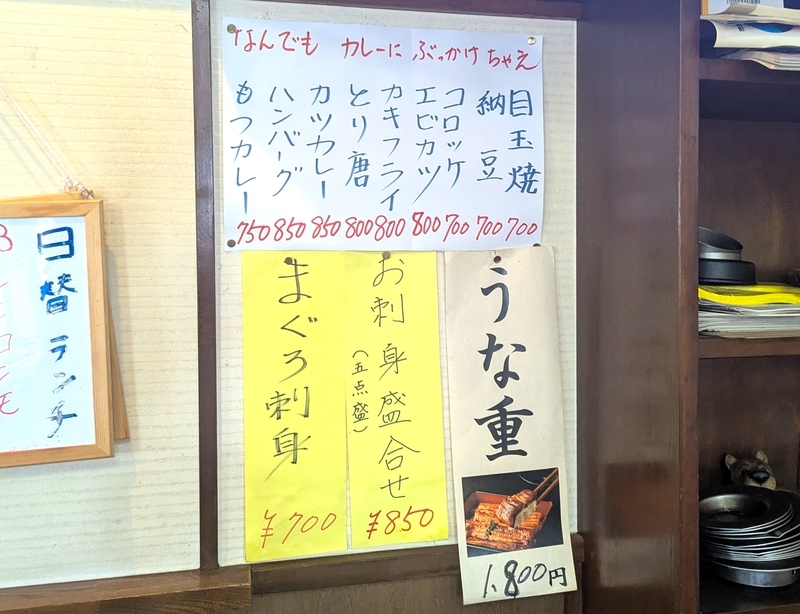 なんでも カレーに ぶっかけちゃえ
目玉焼 700
納豆 700
コロッケ 700
エビカツ 800
カキフライ 800
とり唐 800
カツカレー 850
ハンバーグ 850
もつカレー 750
うな重
1,800円
お刺身盛合せ
(五点盛)
¥850
まぐろ刺身
¥700
日替ランチ